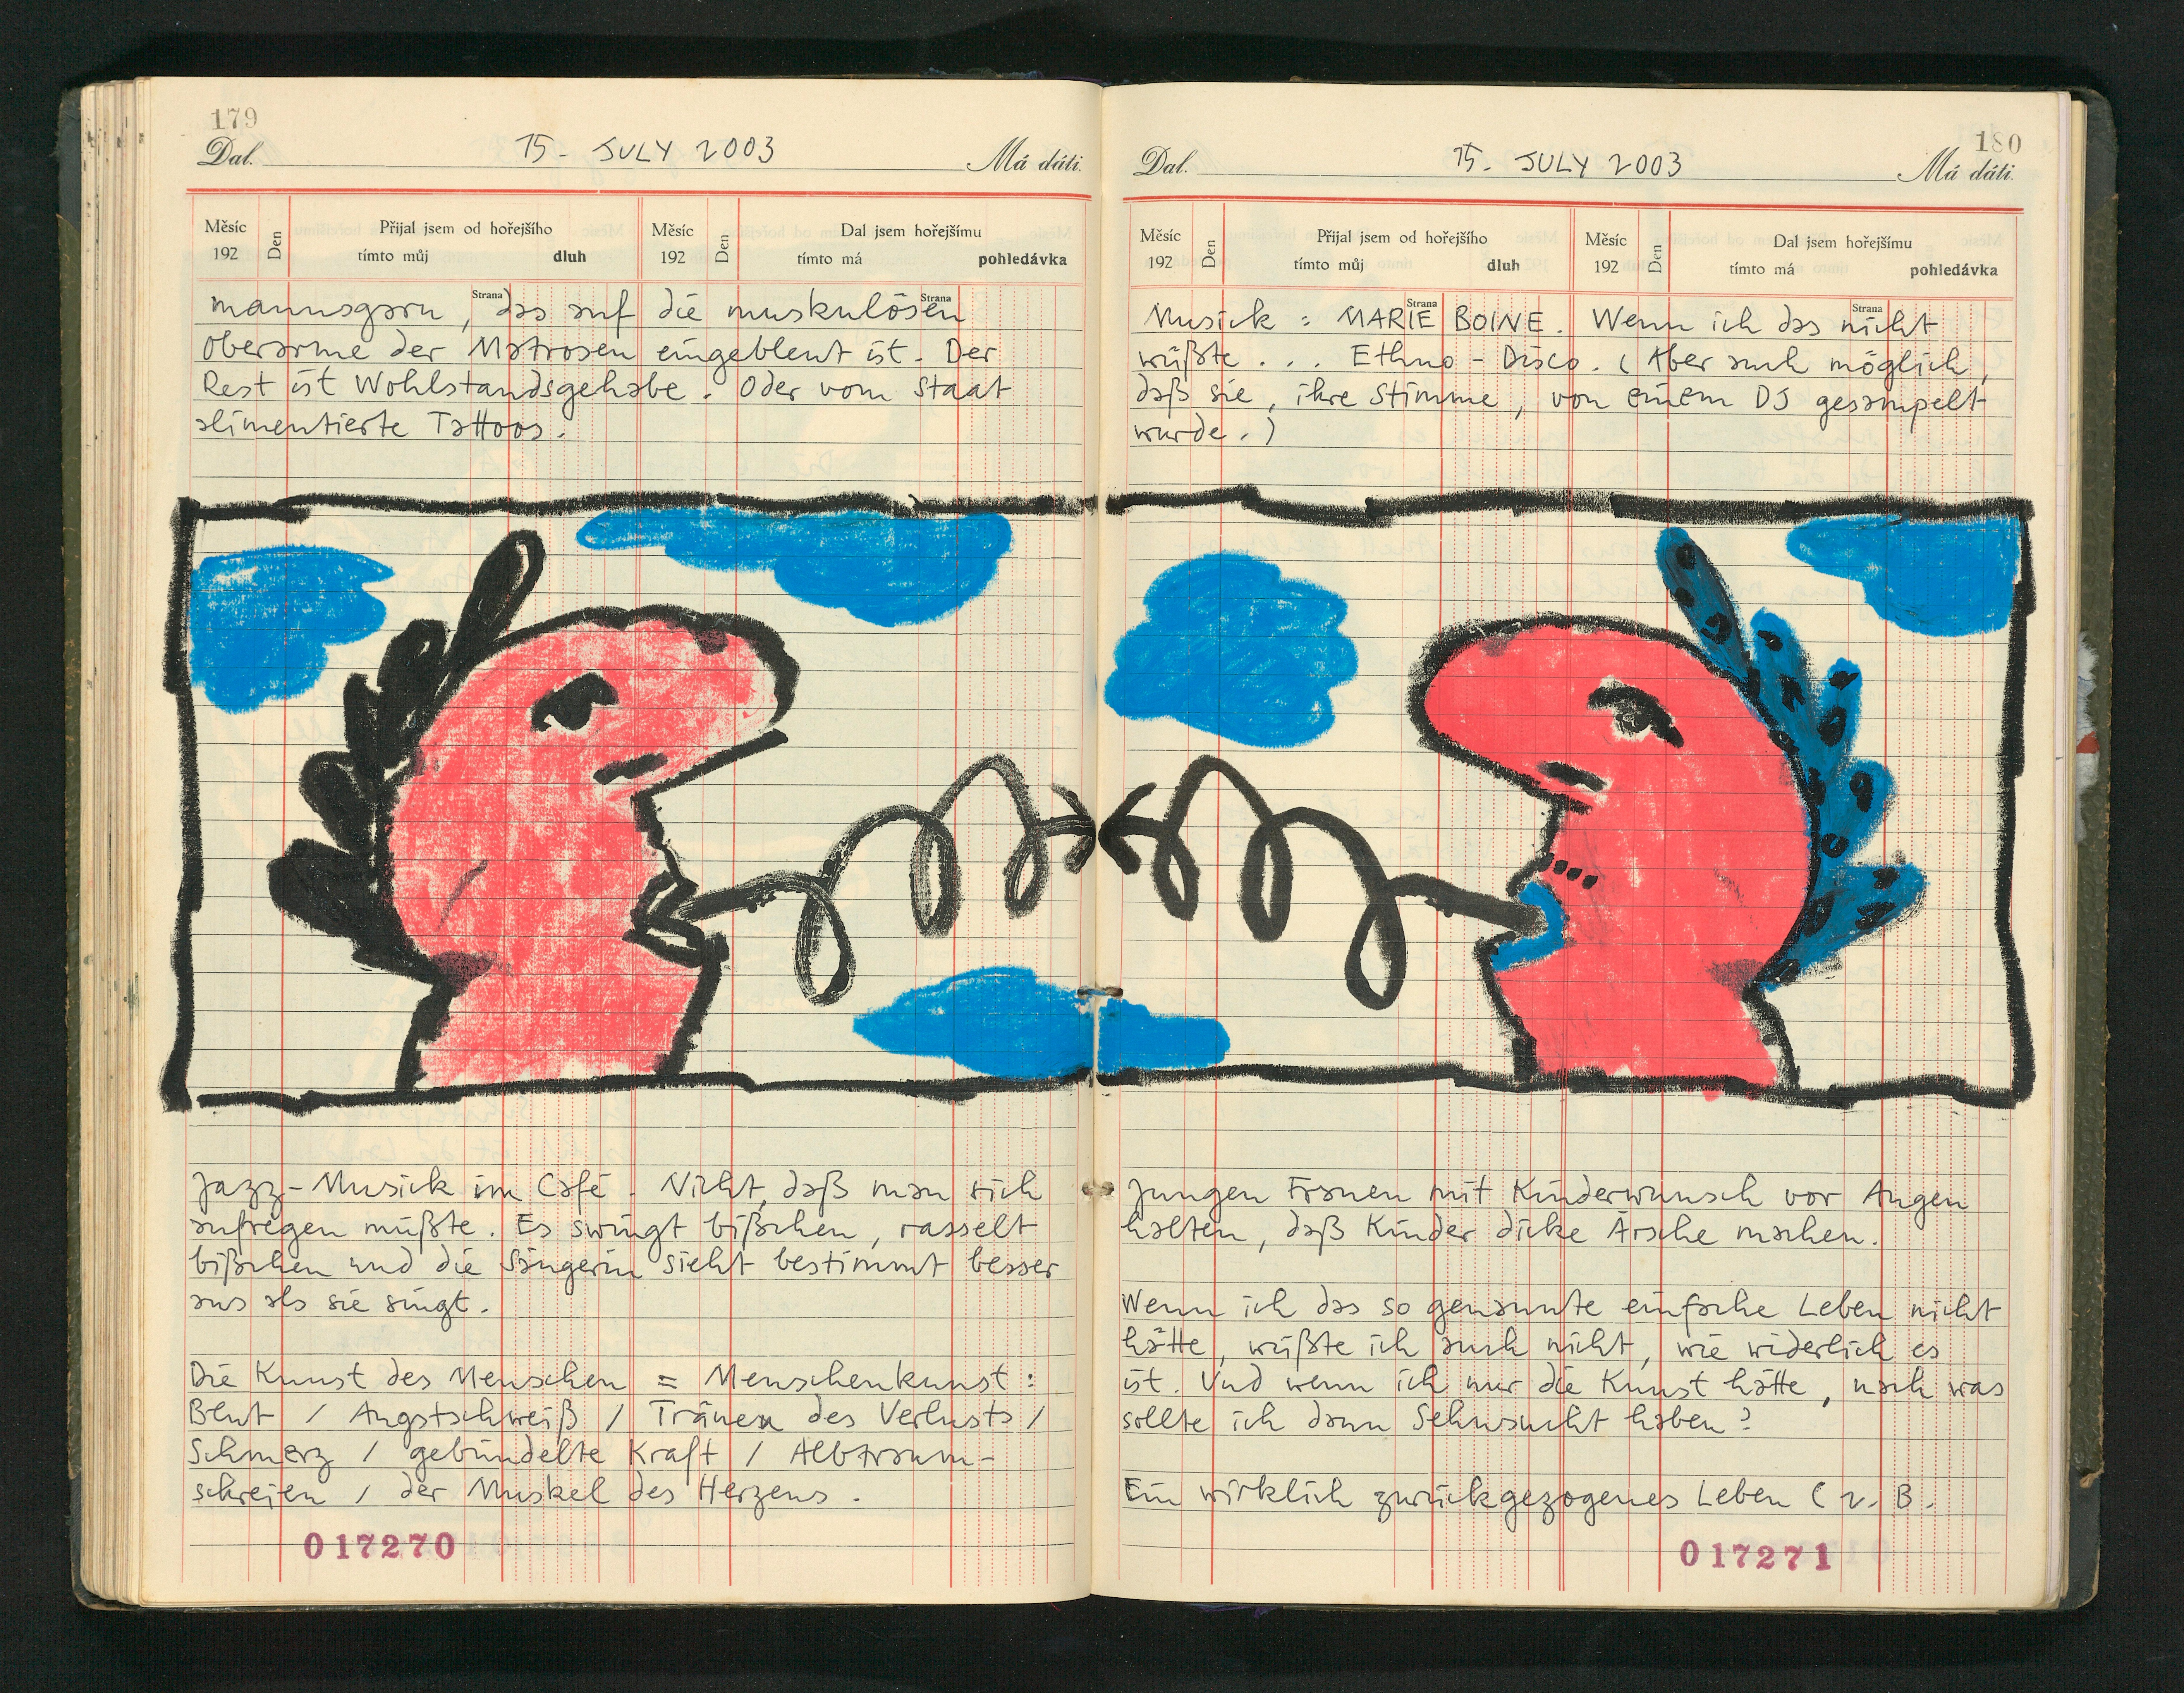 179
Dal. 15. JULY 2003 Má dáti.
Měsíc 192 Den Přijal jsem od hořejšího tímto můj dluh Měsíc 192 Den Dal jsem hořejšímu tímto má pohledávka
Strana Strana
mannsgarn, das auf die muskulösen
Oberarme der Matrosen eingebleut ist. Der
Rest ist Wohlstandsgehabe. Oder vom Staat
alimentierte Tattoos.
Jazz-Musick im Café. Nicht, daß man sich
aufregen müßte. Es swingt bißchen, rasselt
bißchen und die Sängerin sieht bestimmt besser
aus als sie singt.
Die Kunst des Menschen = Menschenkunst:
Blut / Angstschweiß / Tränen des Verlusts /
Schmerz / gebündelte Kraft / Albtraum-
schreien / der Muskel des Herzens.
017270
180
Dal. 15. JULY 2003 Má dáti.
Měsíc 192 Den Přijal jsem od hořejšího tímto můj dluh Měsíc 192 Den Dal jsem hořejšímu tímto má pohledávka
Strana Strana
Musick: MARIE BOINE. Wenn ich das nicht
wüßte... Ethno-Disco. (Aber auch möglich,
daß sie, ihre Stimme, von einem DJ gesampelt
wurde.)
Jungen Frauen mit Kinderwunsch vor Augen
halten, daß Kinder dicke Ärsche machen.
Wenn ich das so genannte einfache Leben nicht
hätte, wüßte ich auch nicht, wie widerlich es
ist. Und wenn ich nur die Kunst hätte, nach was
sollte ich dann Sehnsucht haben?
Ein wirklich zurückgezogenes Leben (z. B.
017271